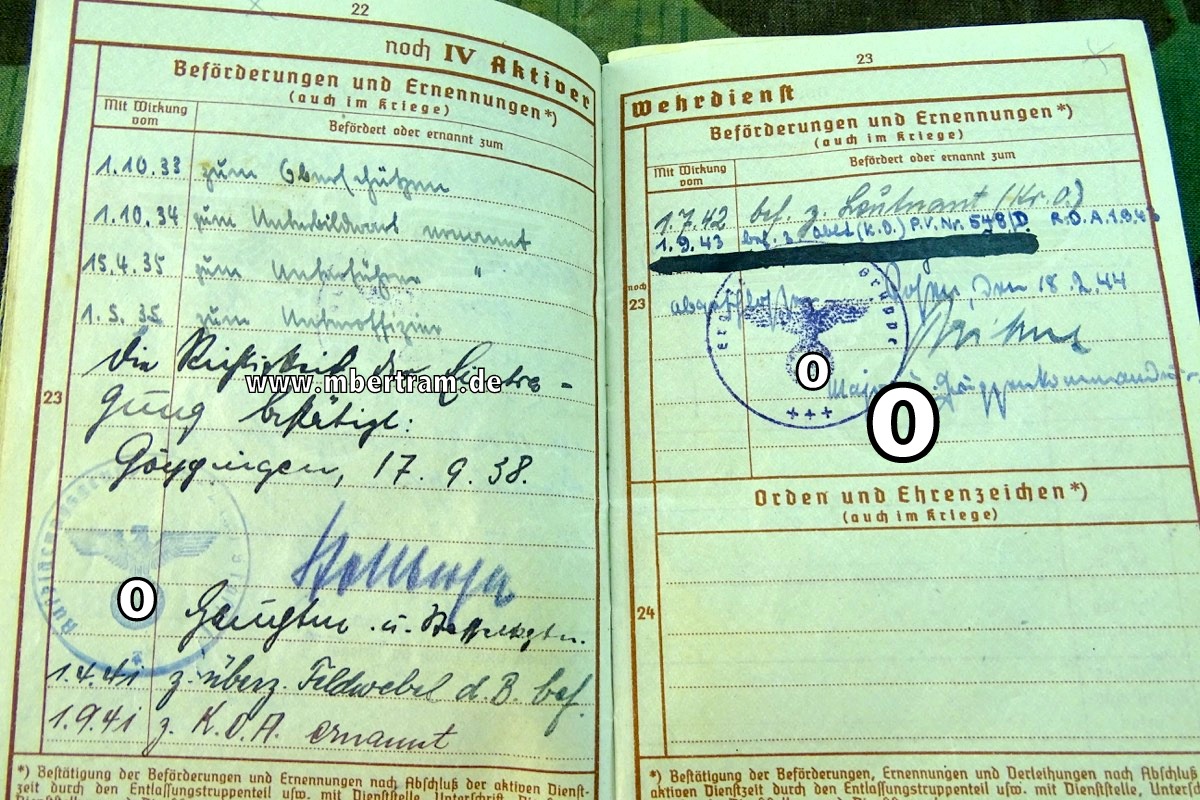 22
noch IV Aktiver
Beförderungen und Ernennungen*)
(auch im Kriege)
Mit Wirkung vom
Befördert oder ernannt zum
1.10.33 zum Oberschützen
1.10.34 zum Unterbildwart ernannt
15.4.35 zum Unterführer "
1.5.35 zum Unteroffizier
Die Richtigkeit der Eintra-
gung bestätigt:
23
Göppingen, 17.9.38.
Hauptm. u. Staffelkptn.
1.4.41 z. überz. Feldwebel d. B. bef.
1.9.41 z. K.O.A. ernannt
*) Bestätigung der Beförderungen und Ernennungen nach Abschluß der aktiven Dienst-
zeit durch den Entlassungstruppenteil usw. mit Dienststelle, Unterschrift
www.mbertram.de
0
23
Wehrdienst
Beförderungen und Ernennungen*)
(auch im Kriege)
Mit Wirkung vom
Befördert oder ernannt zum
1.7.42 bef. z. Leutnant (Kr. O.)
1.9.43 bef. z. Oblt. (K.O.) P.V. Nr. 548/D. R.D.A. 1.9.43
noch 23
abgeschlossen Posen, den 18.2.44
Major u. Gruppenkommandeur
+++
0
0
Orden und Ehrenzeichen*)
(auch im Kriege)
24
*) Bestätigung der Beförderungen, Ernennungen und Verleihungen nach Abschluß
aktiven Dienstzeit durch den Entlassungstruppenteil usw. mit Dienststelle